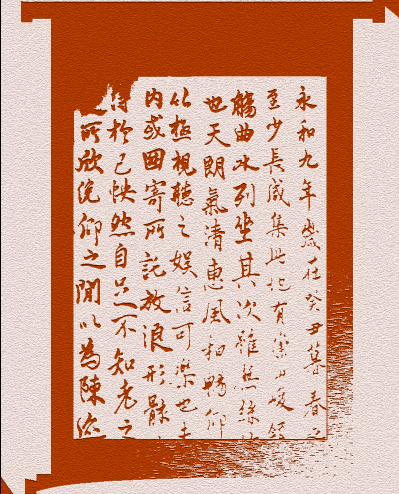 永和九年歲在癸丑暮春之
至少長咸集此地有崇山峻領
觴曲水列坐其次雖無絲
也天朗氣清惠風和暢仰
以極視聽之娛信可樂也夫
内或因寄所託放浪形骸
得於己怏然自足不知老之
所欣俛仰之閒以為陳迹